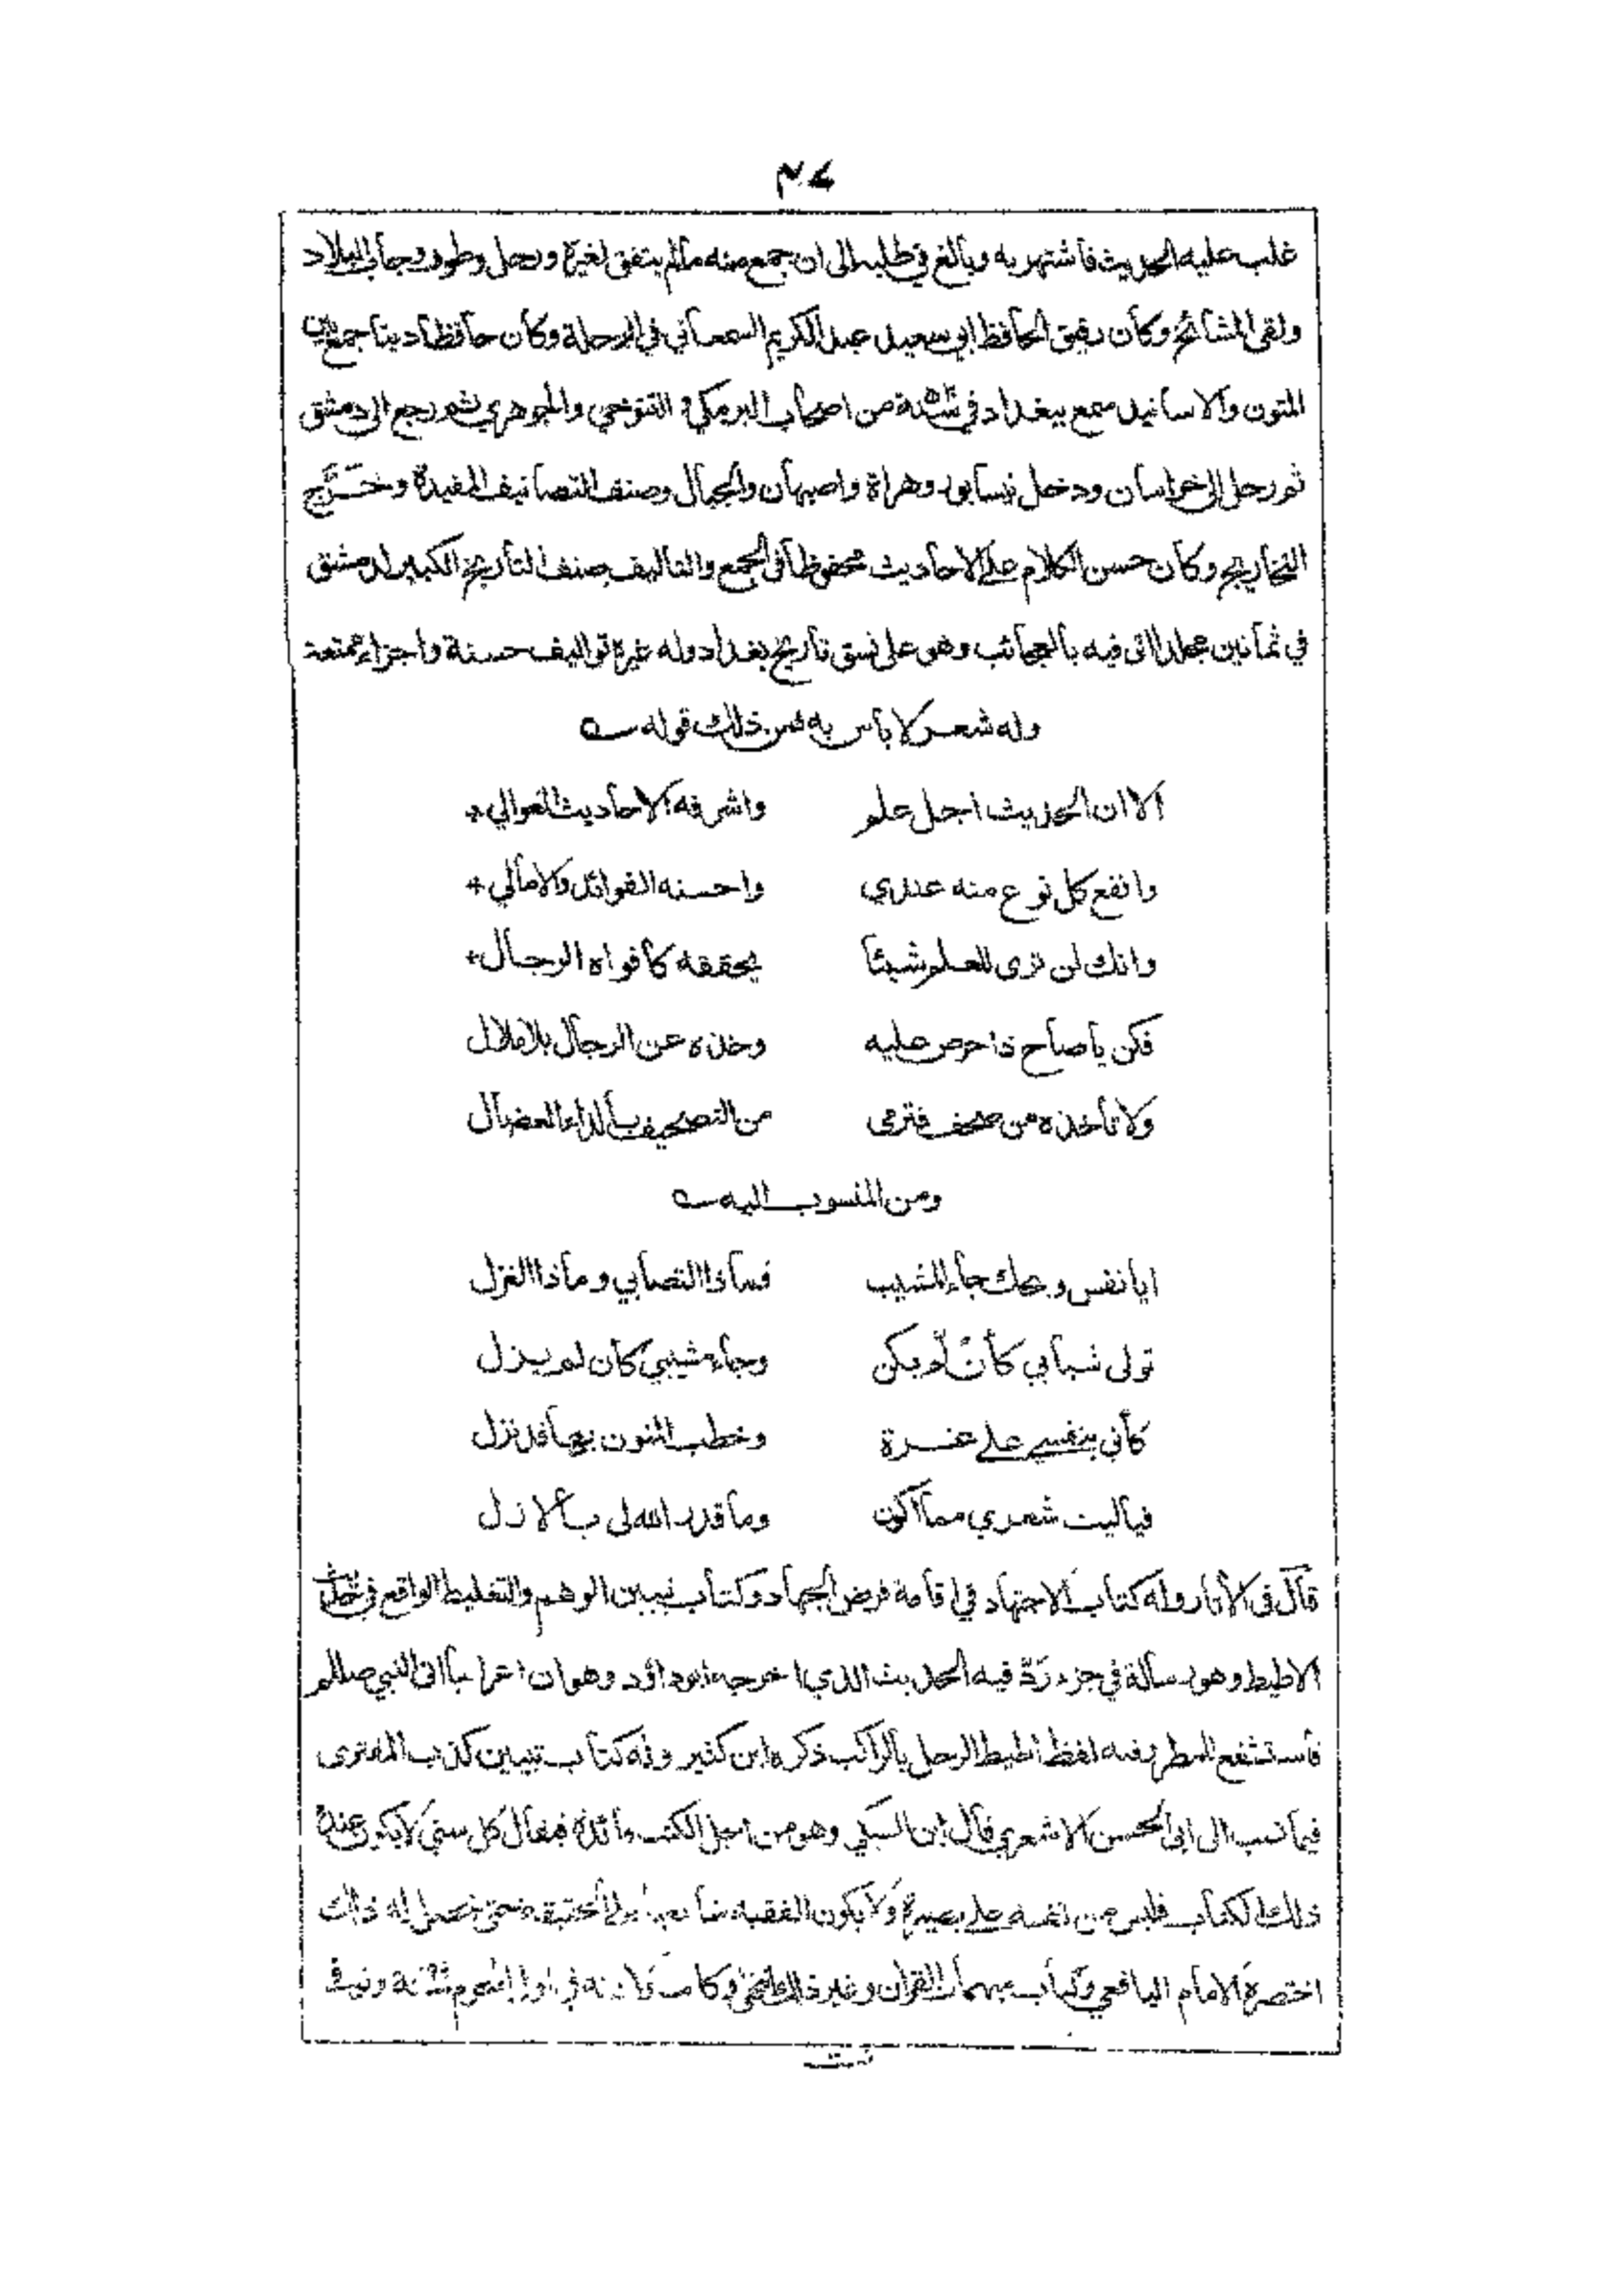 غلب عليه الحديث فاشتهر به وبالغ في طلبه الى ان جمع منه مالم يتفق لغيره ورحل وطوف وجاب البلاد
ولقى المشائخ وكان رفيق الحافظ ابي سعيد عبد الكريم السمعاني في الرحلة وكان حافظا دينا جمع بين
المتون والاسانيد سمع ببغداد في سنة من اصحاب البرمكي و التنوخي والجوهري ثم رجع الى دمشق
ثم رحل الى خراسان ودخل نيسابور وهراة واصبهان والجبال وصنف التصانيف المفيدة وخَرَّج
التخاريج وكان حسن الكلام على الاحاديث محفوظا في الجمع والتاليف صنف التأريخ الكبير لدمشق
في ثمانين مجلدا اتى فيه بالعجائب وهو على نسق تأريخ بغداد وله غيره تواليف حسنة واجزاء ممتعة
وله شعر لا بأس به فمن ذلك قوله
الا ان الحديث اجل علم واشرفه الاحاديث العوالي *
وانفع كل نوع منه عندي واحسنه الفوائد والامالي *
وانك لن ترى للعلم شيئا يحققه كافواه الرجال *
فكن يا صاح ذا حرص عليه وخذه عن الرجال بلا ملال
ولا تأخذه من صحف فترمى من التصحيف بالداء العضال
ومن المنسوب اليه
ايا نفس ويحك جاء المشيب فماذا التصابي وماذا الغزل
تولى شبابي كأن لم يكن وجاء مشيبي كأن لم يزل
كأني بنفسي على غرة وخطب المنون بها قد نزل
فياليت شعري مما اكون وما قدر الله لى بالازل
قال في الأثار وله كتاب الاجتهاد في اقامة فرض الجهاد وكتاب تبيين الوهم والتغليط الواقع في حديث
الاطيط وهو رسالة في جزء رَدّ فيه الحديث الذي اخرجه ابو داؤد وهو ان اعرابيا اتى النبي صللم
فاستشفع للمطر وفيه لفظ اطيط الرحل بالراكب ذكره ابن كثير وله كتاب تبيين كذب المفترى
فيما نسب الى ابي الحسن الاشعري قال ابن السبكي وهو من اجل الكتب فائدة فيقال كل سني لا يكون عنده
ذلك الكتاب فليس من نفسه على بصيرة ولا يكون الفقيه شافعيا على الحقيقة حتى يحصل له ذلك
اختصره الامام اليافعي وكتاب مبهمات القران وغير ذلك وكانت ولادته في اول المحرم سنة وتوفى